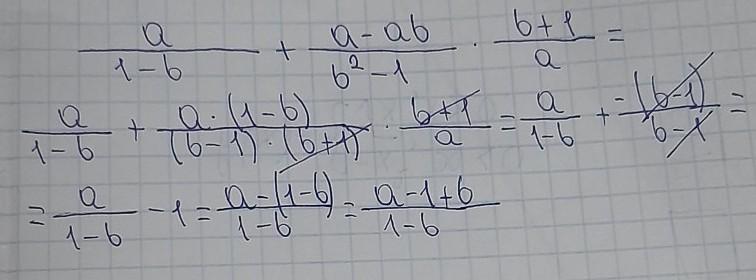 a/(1-b) + (a-ab)/(b²-1) · (b+1)/a =
a/(1-b) + (a·(1-b))/((b-1)·(b+1)) · (b+1)/a = a/(1-b) + (-(b-1))/(b-1) =
= a/(1-b) - 1 = (a-(1-b))/(1-b) = (a-1+b)/(1-b)